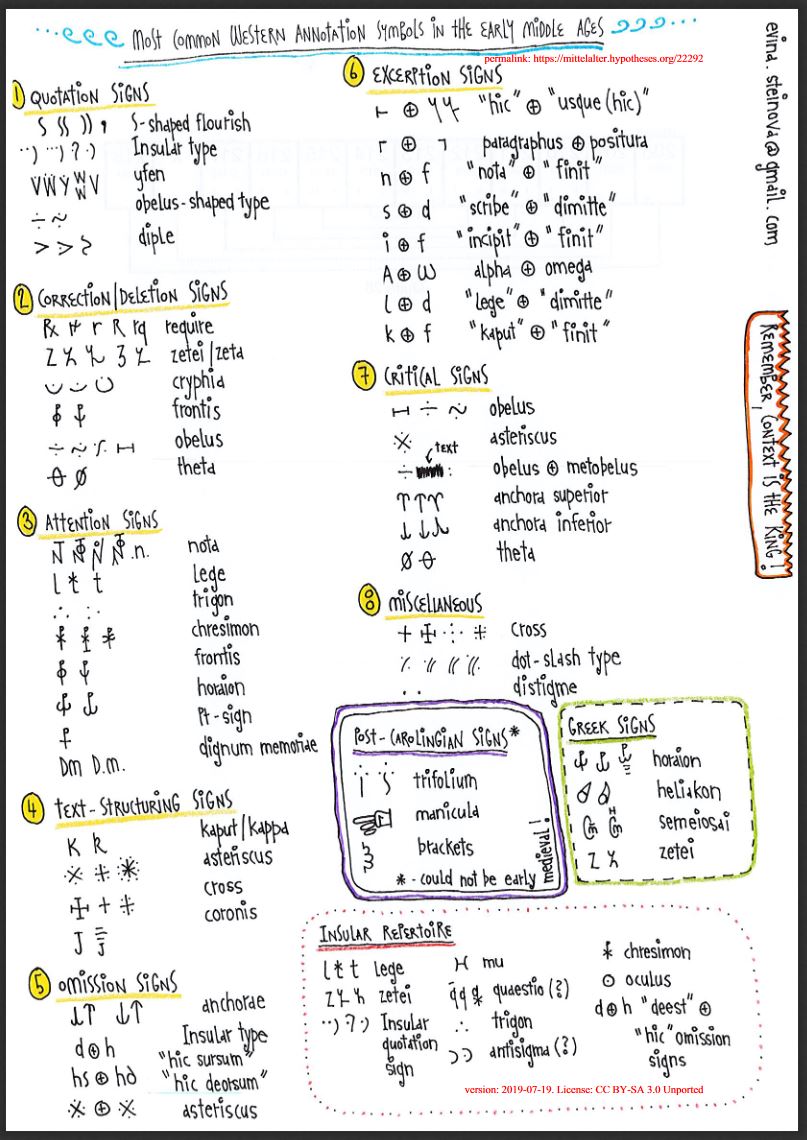 Most Common Western Annotation Symbols in the Early Middle Ages
permalink: https://mittelalter.hypotheses.org/22292
evina.steinova@gmail.com
Remember, context is the king!
1 Quotation signs
S-shaped flourish
Insular type
yfen
obelus-shaped type
diple
2 Correction/Deletion signs
require
zetei/zeta
cryphia
frontis
obelus
theta
3 Attention signs
.n. nota
Lege
trigon
chresimon
frontis
horaion
Pt-sign
Dm D.m. dignum memoriae
4 Text-structuring signs
K k kaput/kappa
asteriscus
cross
coronis
5 Omission signs
anchorae
d ⊕ h Insular type
hs ⊕ hd "hic sursum"
"hic deorsum"
※ ⊕ ※ asteriscus
6 Excerption signs
"hic" ⊕ "usque (hic)"
r ⊕ ㄱ paragraphus ⊕ positura
n ⊕ f "nota" ⊕ "finit"
s ⊕ d "scribe" ⊕ "dimitte"
i ⊕ f "incipit" ⊕ "finit"
A ⊕ ω alpha ⊕ omega
l ⊕ d "lege" ⊕ "dimitte"
k ⊕ f "kaput" ⊕ "finit"
7 Critical signs
obelus
※ asteriscus
text
obelus ⊕ metobelus
anchora superior
anchora inferior
theta
8 Miscellaneous
cross
dot-slash type
distigme
Post-Carolingian signs*
trifolium
manicula
brackets
* - could not be early medieval!
Greek signs
horaion
heliakon
semeiosai
zetei
Insular repertoire
lege
zetei
Insular quotation sign
mu
quaestio (?)
∴ trigon
antisigma (?)
chresimon
⊙ oculus
d ⊕ h "deest" ⊕
"hic" omission
signs
version: 2019-07-19. License: CC BY-SA 3.0 Unported